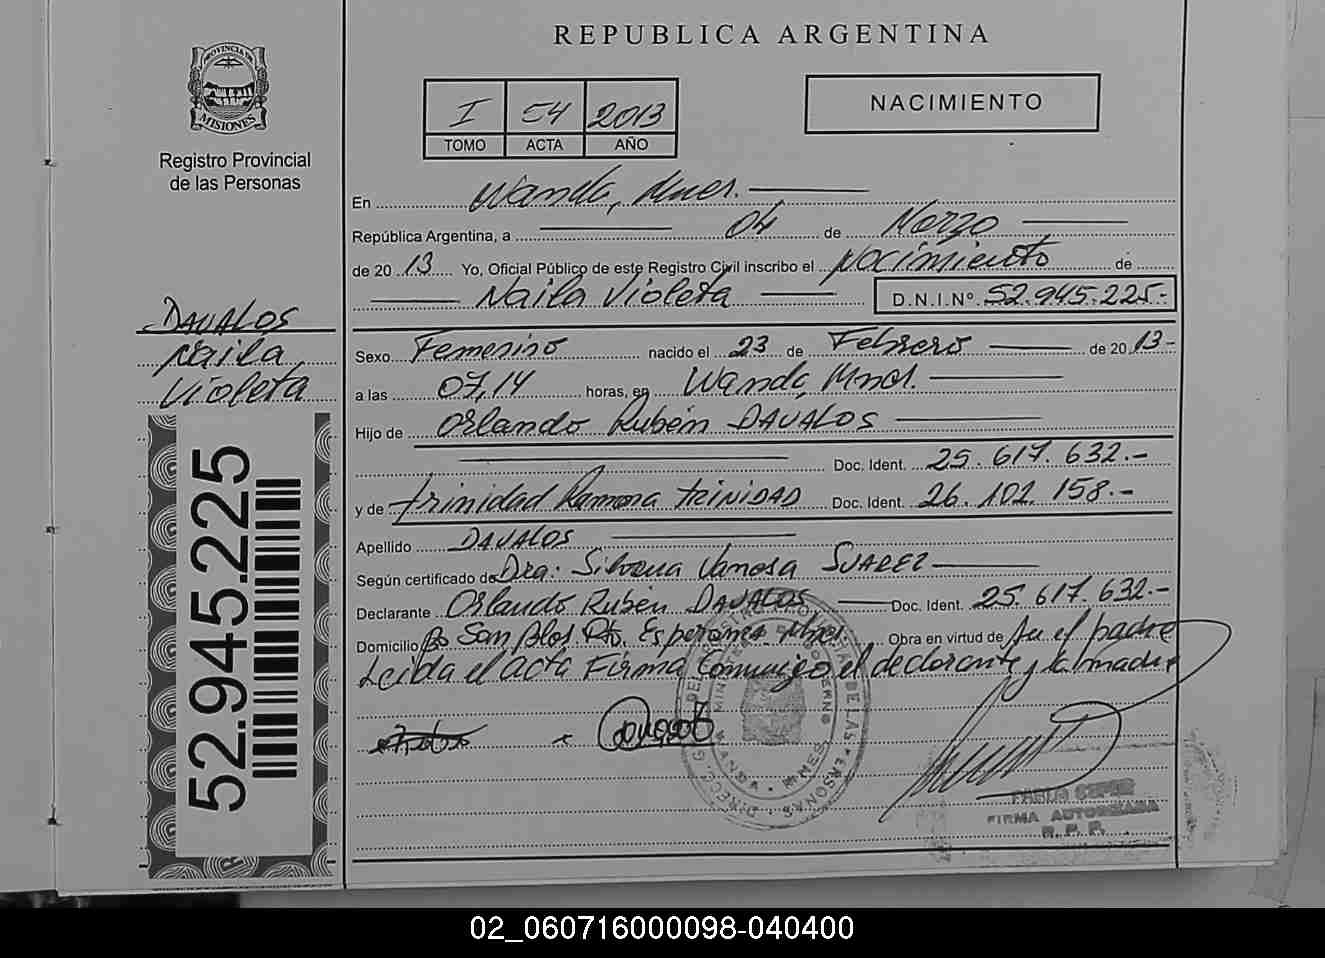 REPUBLICA ARGENTINA
PROVINCIA DE MISIONES
Registro Provincial
de las Personas
I 54 2013
TOMO ACTA AÑO
NACIMIENTO
En Wanda, Mnes.
República Argentina, a 04 de Marzo
de 2013 Yo, Oficial Público de este Registro Civil inscribo el Nacimiento de
Naila Violeta D.N.I.Nº. 52.945.225.-
DAVALOS
Naila
Violeta
52.945.225
Sexo Femenino nacido el 23 de Febrero de 2013-
a las 07,14 horas, en Wanda, Mnes.
Hijo de Orlando Rubén DAVALOS
Doc. Ident. 25.617.632.-
y de Trinidad Ramona TRINIDAD Doc. Ident. 26.102.158.-
Apellido DAVALOS
Según certificado de Dra: Silvana Vanesa SUAREZ
Declarante Orlando Rubén DAVALOS Doc. Ident. 25.617.632.-
Domicilio Bº San Blas Pto. Esperanza Mnes. Obra en virtud de ser el padre
Leida el acta Firma Conmigo el declarante y la madre
WANDA - MNES.
FIRMA AUTORIZADA
R. P. P.
02_060716000098-040400